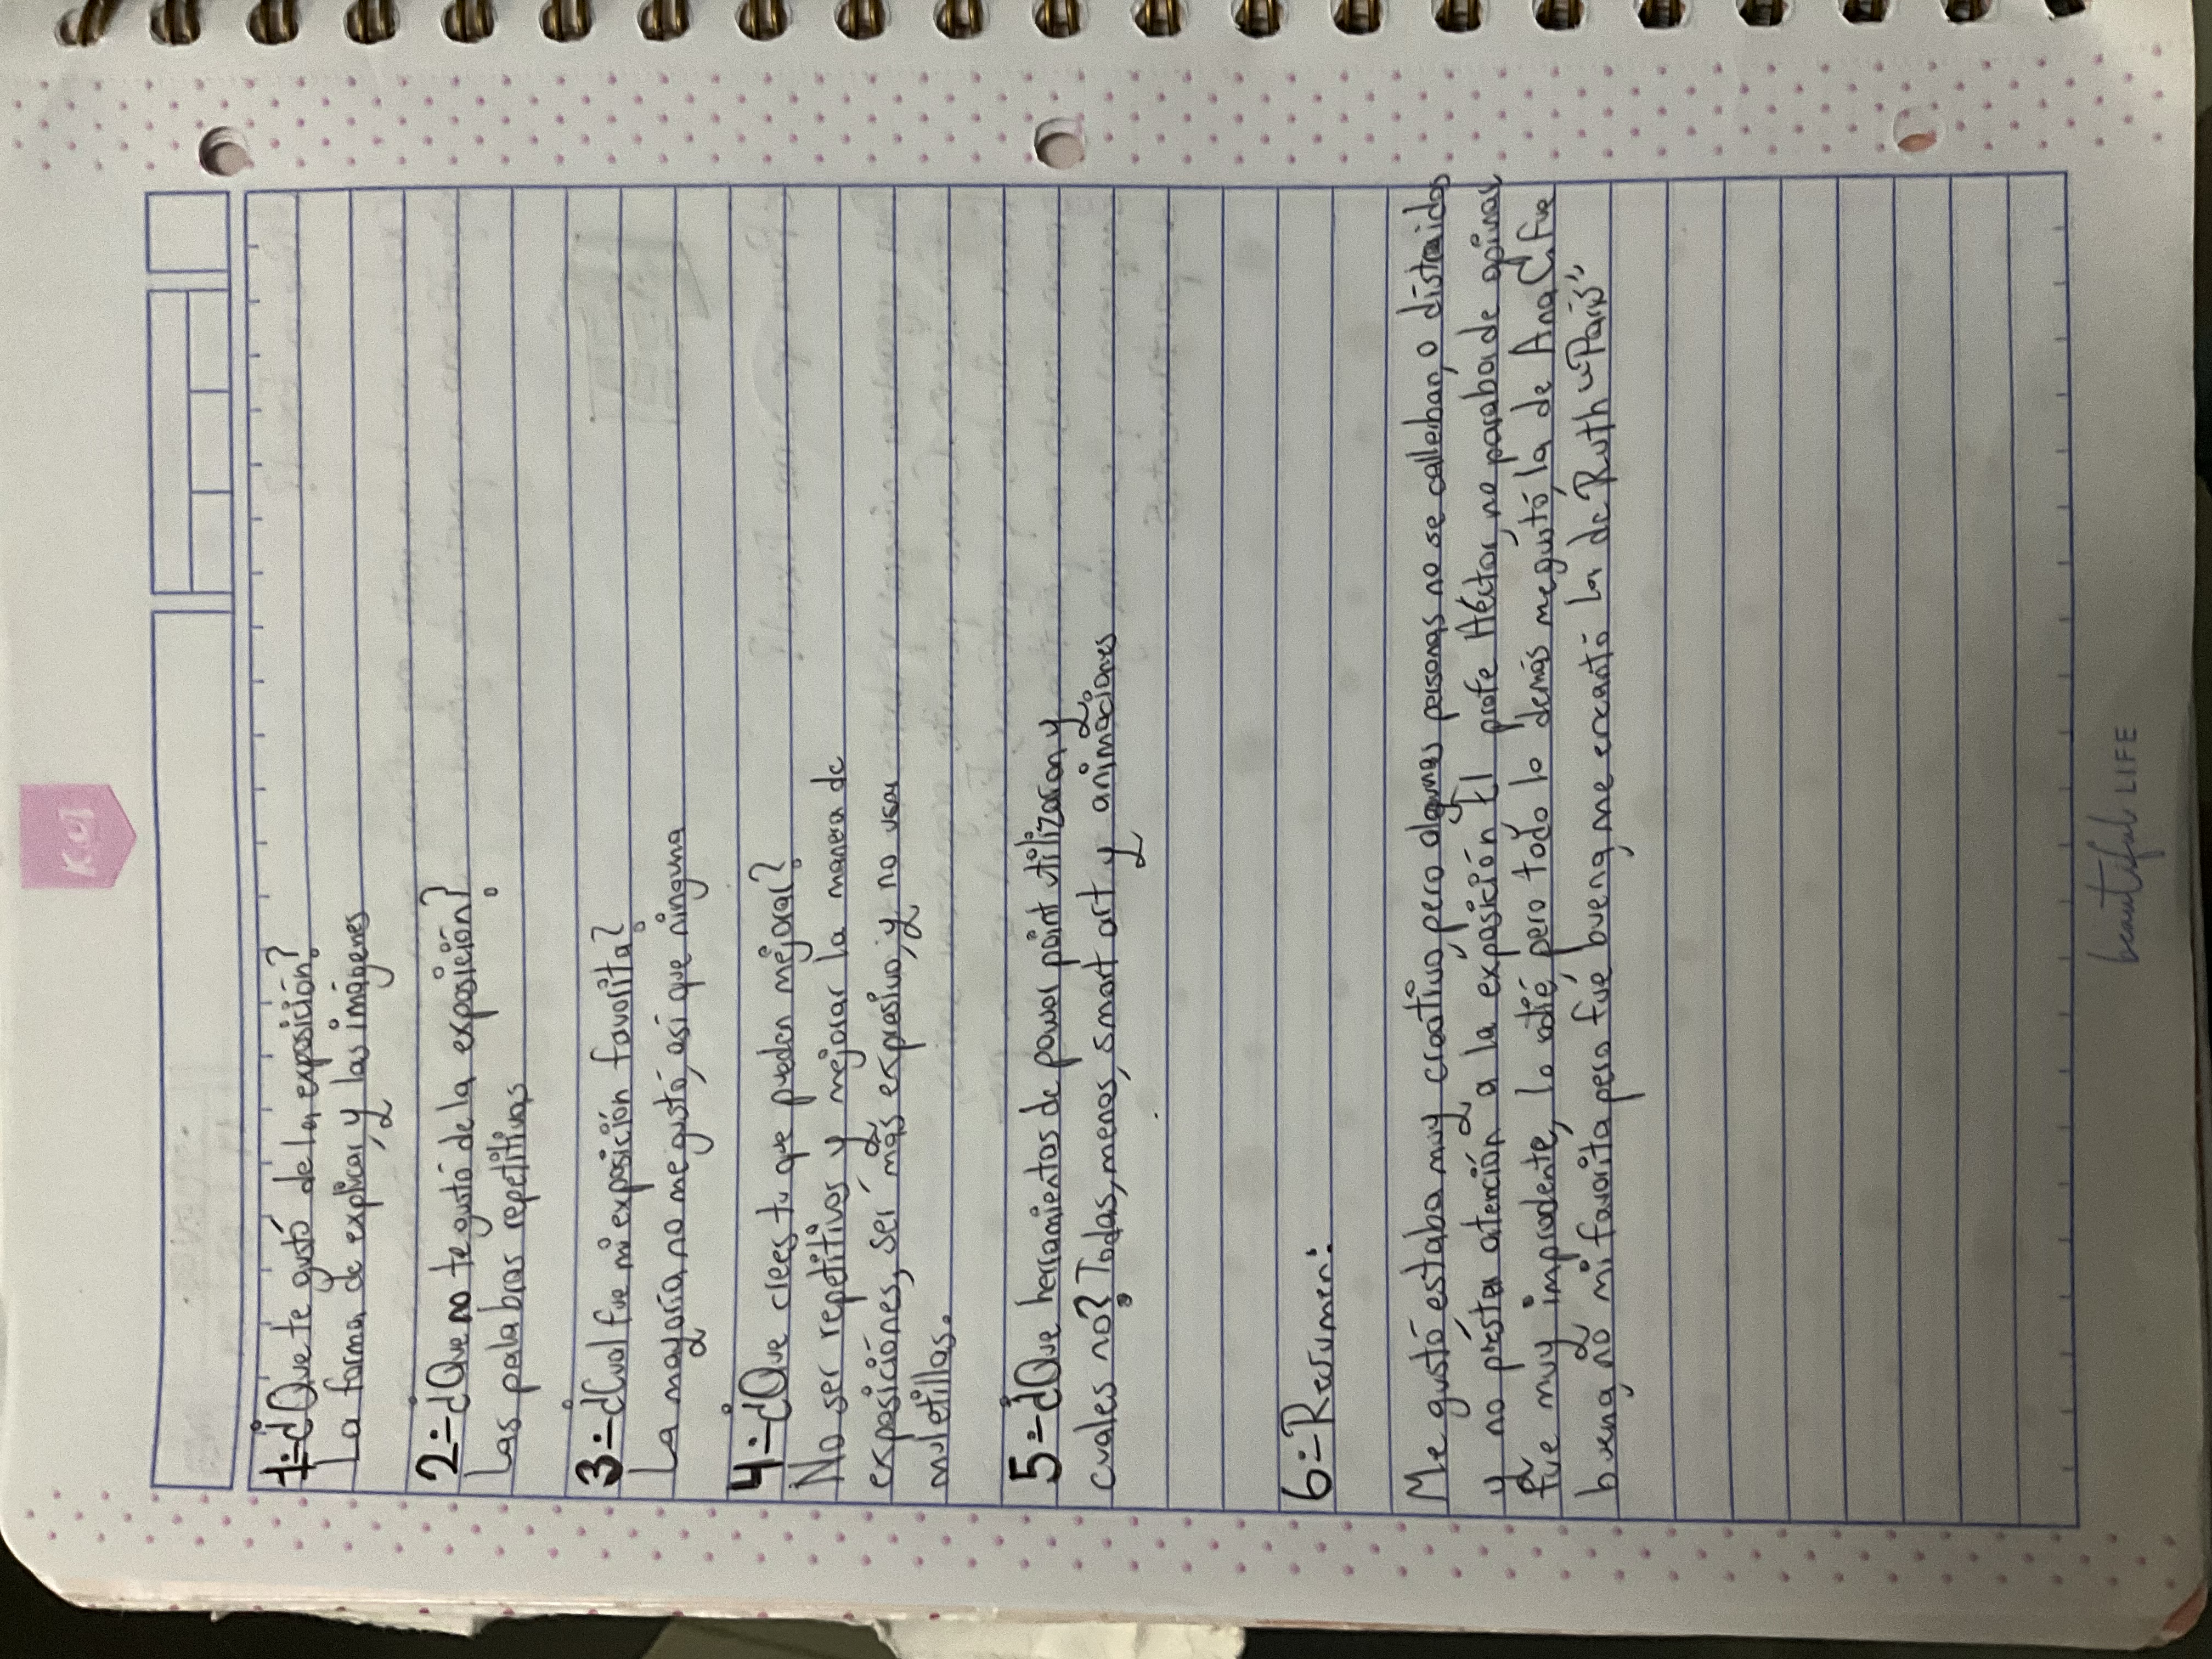 K.o!
1=¿Que te gustó de la exposición?
La forma de explicar, y las imágenes
2=¿Que no te gustó de la exposición?
Las palabras repetitivas
3=¿Cual fue mi exposición favorita?
La mayoría no me gustó, así que ninguna
4=¿Que crees tu que pueden mejorar?
No ser repetitivos y mejorar la manera de
exposiciónes, ser más expresivo, y no usar
muletillas.
5=¿Que herramientas de power point utilizaron y
cuales no? Todas, menos, smart art y animaciónes
6=Resumen:
Me gustó estaba muy creativo, pero algunas personas no se calleban, o distraidos
y no préstar atención a la exposición El profe Héctor, no paraba de opinar
fue muy imprudente, lo odié pero todo lo demás me gustó, la de Ana C. fue
buena, no mi favorita pero fué buena, me encantó la de Ruth "París"
beautiful LIFE